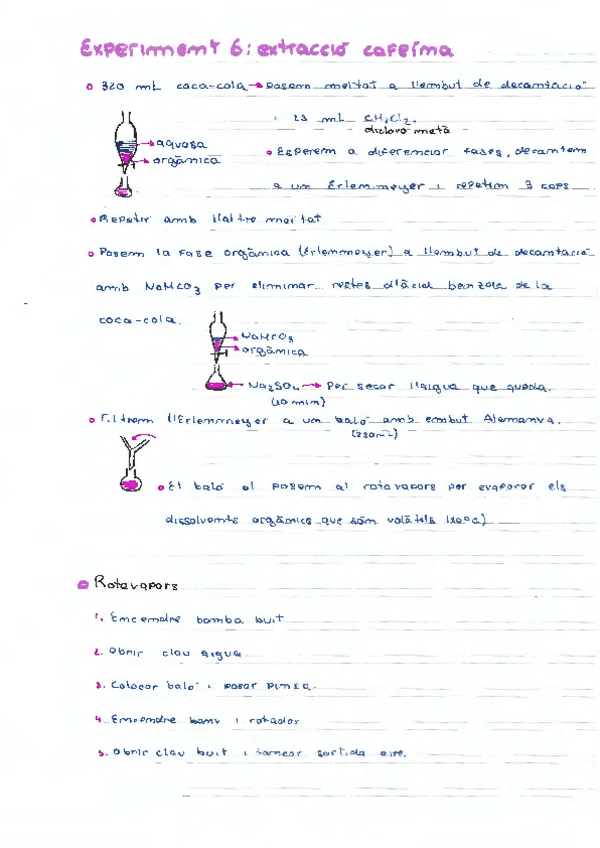 Experiment 6: extracció cafeïna
320 mL coca-cola → posem meitat a l'embut de decantació
i 25 mL CH2Cl2.
dicloro metà
→ aquosa
→ orgànica
Esperem a diferenciar fases, decantem
a un Erlenmeyer i repetim 3 cops
Repetir amb l'altre meitat
Posem la fase orgànica (Erlenmeyer) a l'embut de decantació
amb NaHCO3 per eliminar restes d'àcid benzoïa de la
coca-cola.
→ NaHCO3
→ orgànica
→ Na2SO4 → Per secar l'aigua que queda.
(10 min)
Filtrem l'Erlenmeyer a un baló amb embut Alemanya.
(250mL)
El baló el posem al rotavapors per evaporar els
dissolvents orgànics que són volàtils
Rotavapors
1. Encendre bomba buit
2. Obrir clau aigua
3. Colocar baló i posar pinça.
4. Encendre bany i rotador
5. Obrir clau buit i tancar sortida aire.